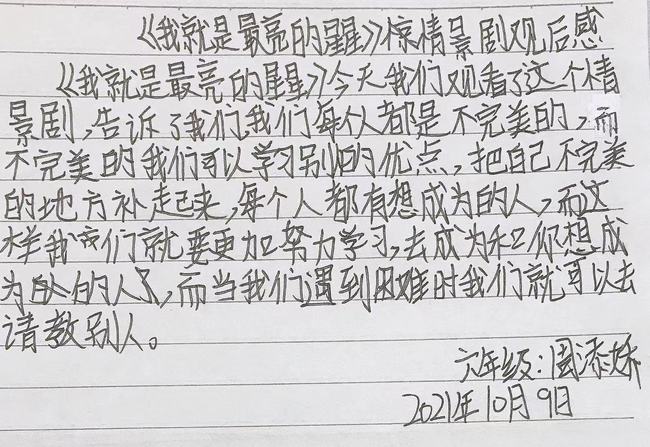 《我就是最亮的星星》惊情景剧观后感
《我就是最亮的星星》今天我们观看了这个情
景剧，告诉了我们，我们每个人都是不完美的，而
不完美的我们可以学习别人的优点，把自己不完美
的地方补起来，每个人都有想成为的人，而这
样我们就要更加努力学习，去成为和你想成
为的人，而当我们遇到困难时我们就可以去
请教别人。
六年级：周添
2021年10月9日